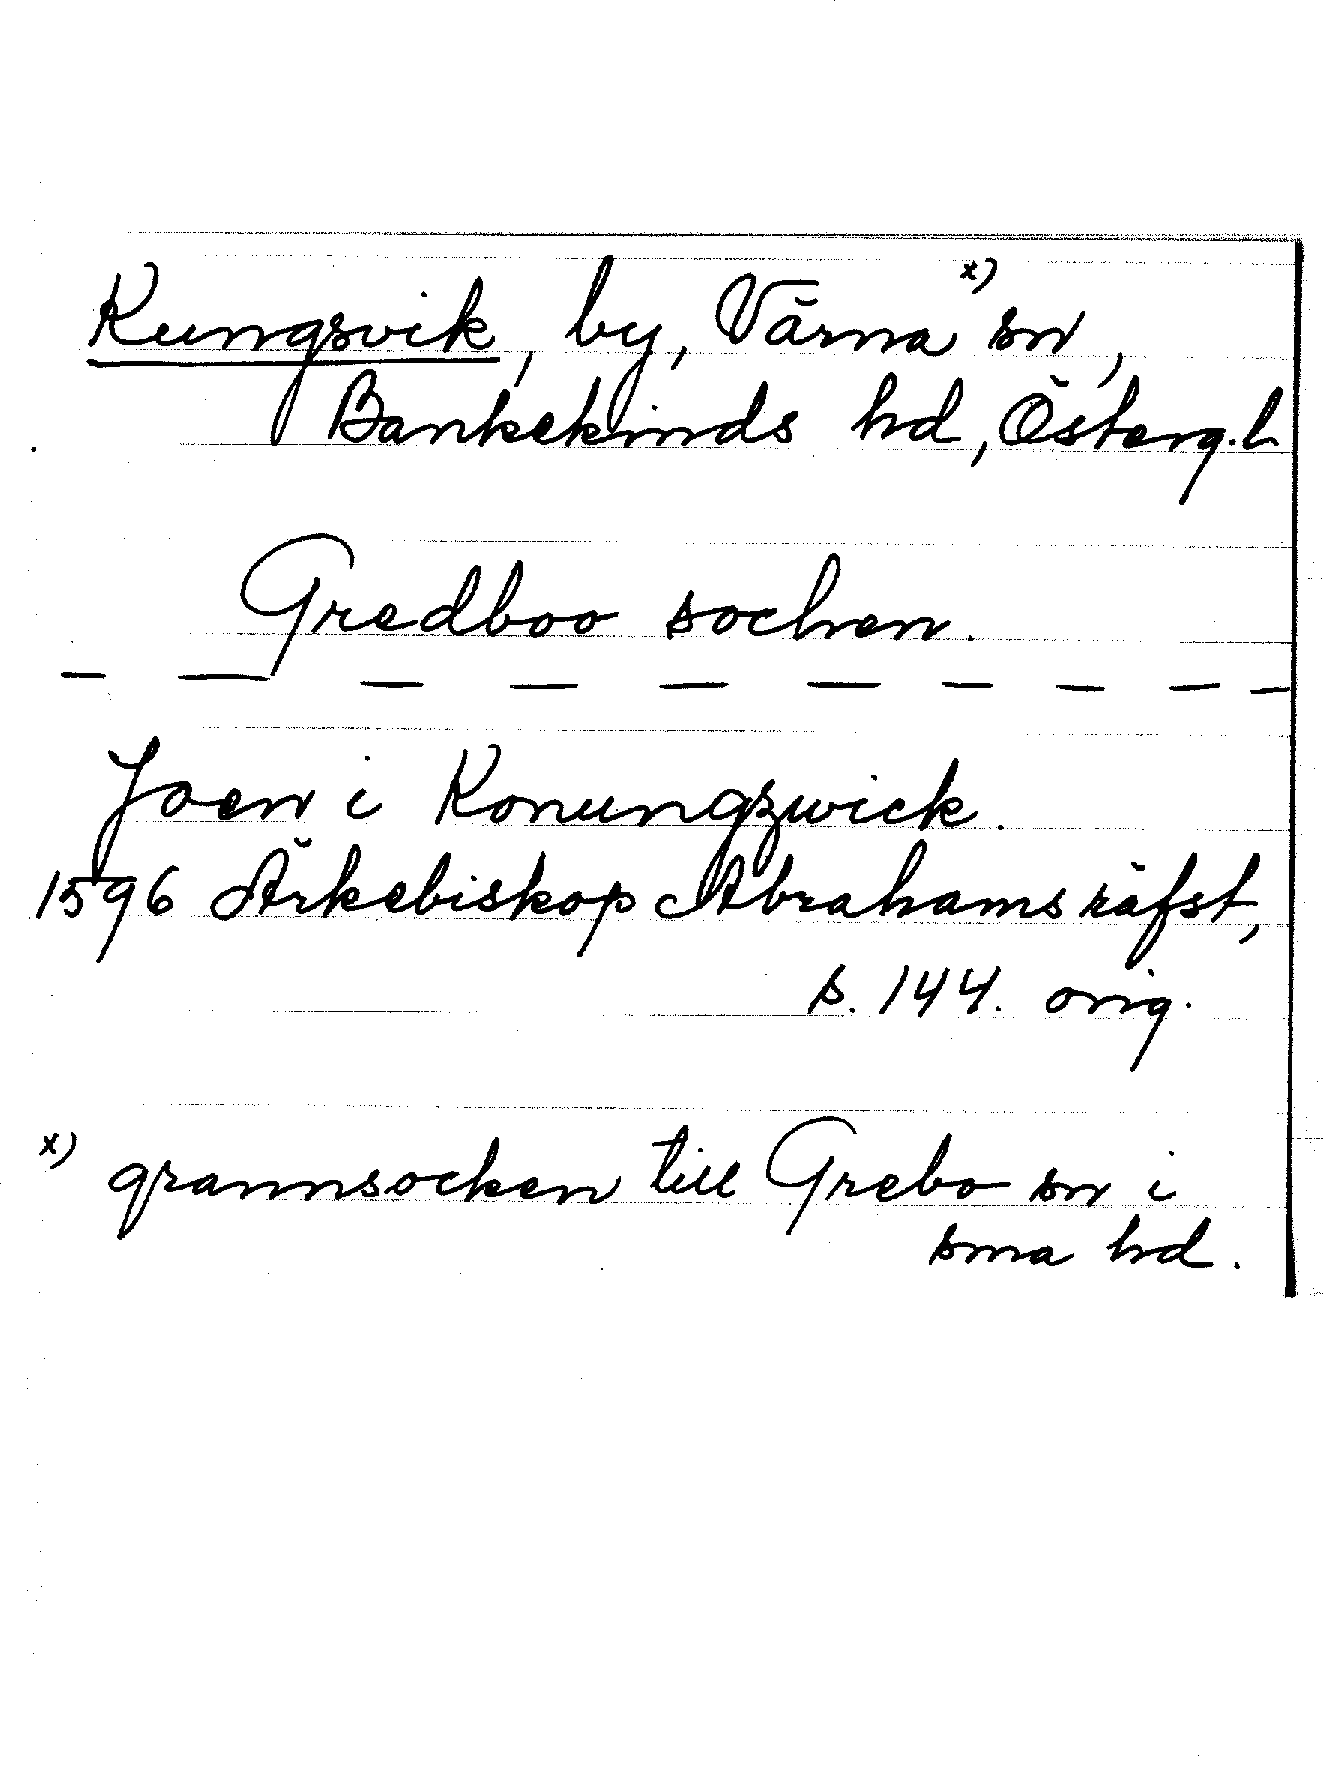 Kungsvik, by, Värna x) sn,
Bankekinds hd, Österg. l.
Gredboo sochen.
Joen i Konungzwick.
1596 Ärkebiskop Abrahams räfst,
s. 144. orig.
x) grannsocken till Grebo sn i
sma hd.